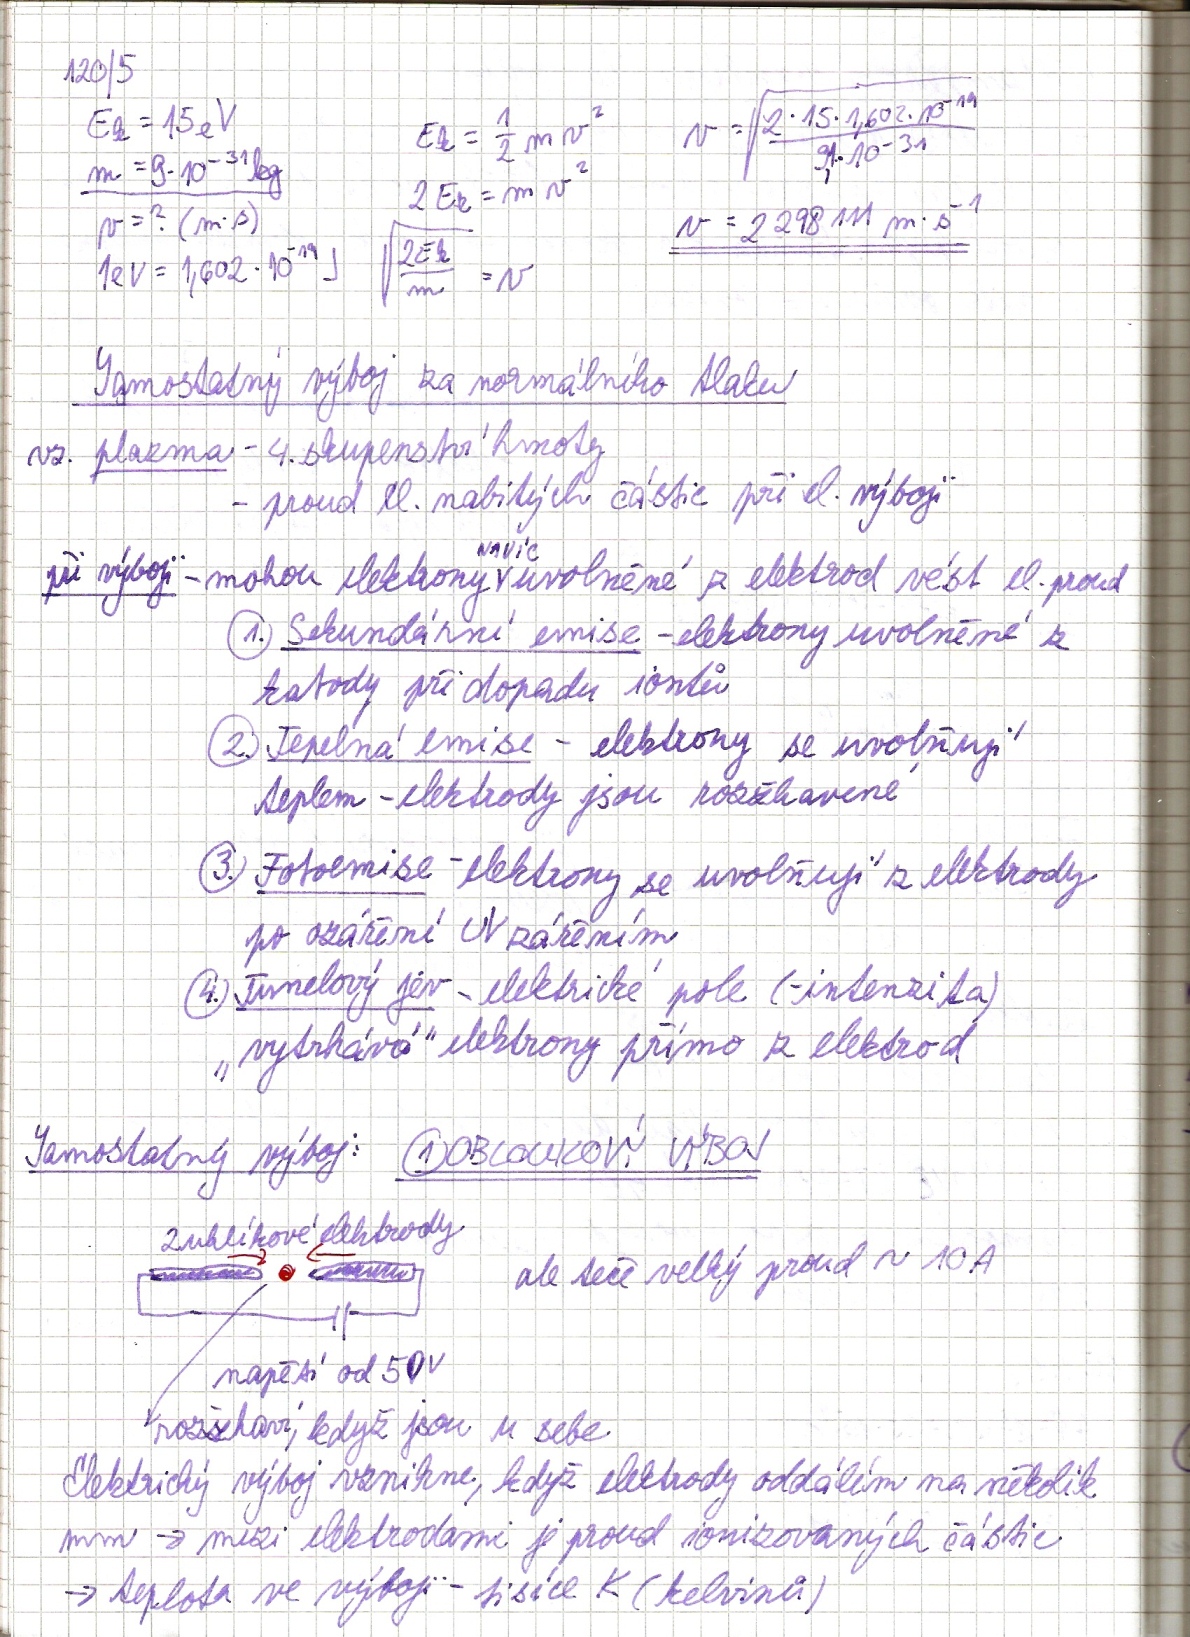 120/5
Ek = 15 eV
m = 9·10⁻³¹ kg
v = ? (m·s)
1eV = 1,602·10⁻¹⁹ J
Ek = 1/2 m v²
2 Ek = m v²
√(2Ek/m) = v
v = √(2·15·1,602·10⁻¹⁹ / 9,1·10⁻³¹)
v = 2 298 111 m·s⁻¹
Samostatný výboj za normálního tlaku
vz. plazma - 4. skupenství hmoty
- proud el. nabitých částic při el. výboji
při výboji - mohou elektrony navíc uvolněné z elektrod vést el. proud
1. Sekundární emise - elektrony uvolněné z
katody při dopadu iontů
2. Tepelná emise - elektrony se uvolňují
teplem - elektrody jsou rozžhavené
3. Fotoemise - elektrony se uvolňují z elektrody
po ozáření UV zářením
4. Tunelový jev - elektrické pole (-intenzita)
„vytrhává" elektrony přímo z elektrod
Samostatný výboj: 1 OBLOUKOVÝ VÝBOJ
2 uhlíkové elektrody
ale teče velký proud ~ 10A
napětí od 50V
rozžhaví, když jsou u sebe
Elektrický výboj vznikne, když elektrody oddálím na několik
mm → mezi elektrodami je proud ionizovaných částic
→ teplota ve výboji - tisíce K (kelvinů)